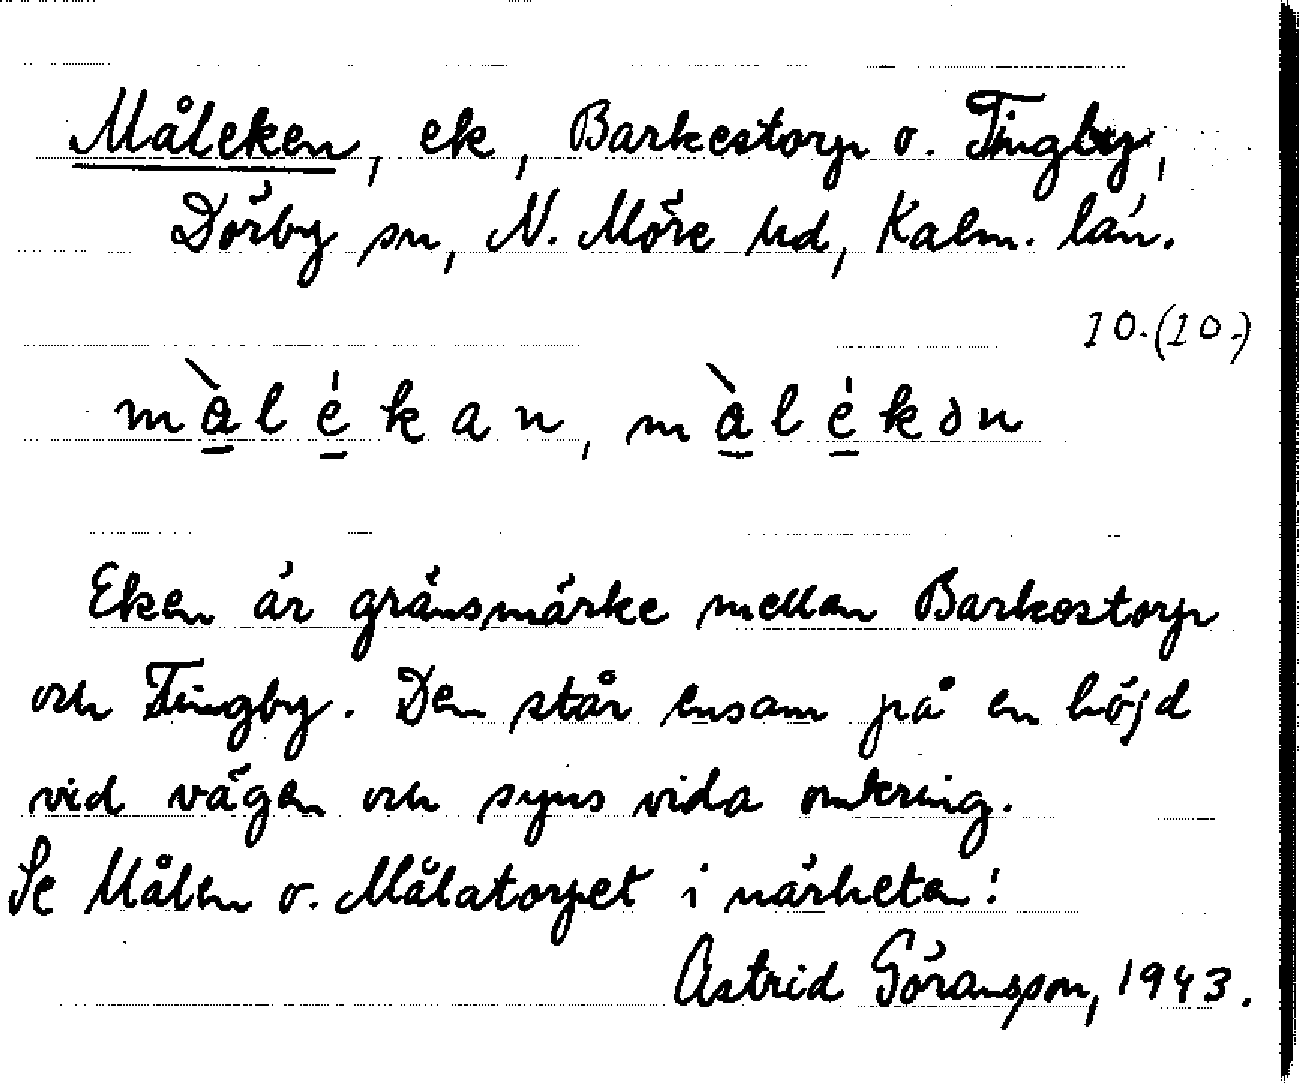 Måleken, ek, Barkestorp o. Tingby,
Dörby sn, N. Möre hd, Kalm. län.
10.(10.)
mà̱lé̱kan, mà̱lé̱kən
Eken är gränsmärke mellan Barkestorp
och Tingby. Den står ensam på en höjd
vid vägen och syns vida omkring.
Se Målen o. Målatorpet i närheten!
Astrid Göransson, 1943.